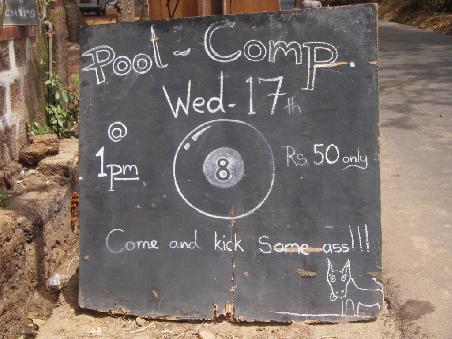 CHIPS
Pool - Comp.
Wed - 17th
@
1pm
8
Rs. 50 only
Come and kick some ass!!!